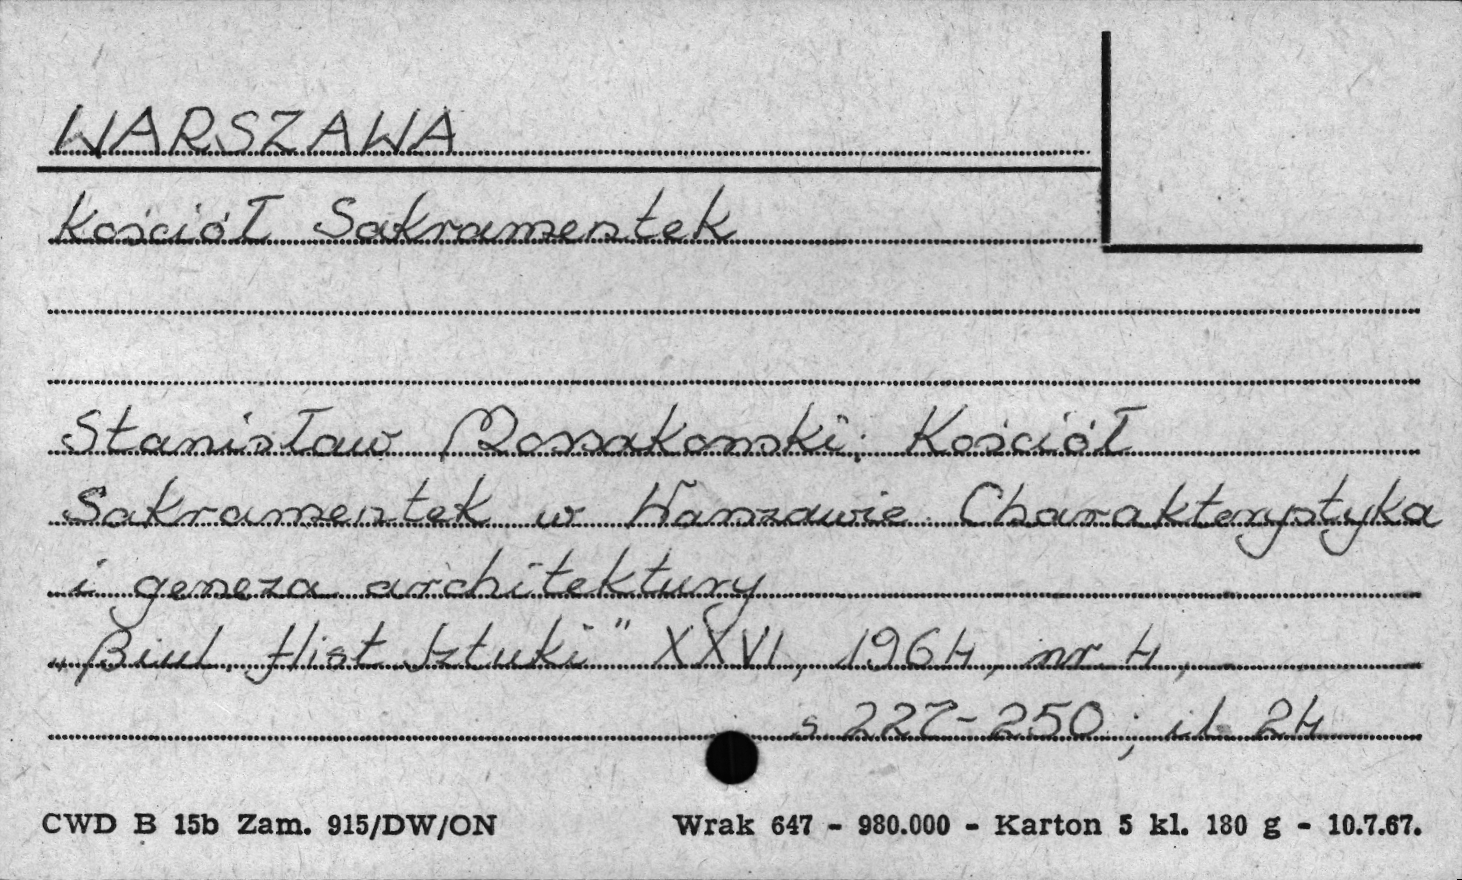 WARSZAWA
Kościół Sakramentek
Stanisław Mossakowski: Kościół
Sakramentek w Warszawie. Charakterystyka
i geneza architektury
„Biul. Hist. Sztuki" XXVI, 1964, nr 4,
s 227-250; il. 24
CWD B 15b Zam. 915/DW/ON Wrak 647 - 980.000 - Karton 5 kl. 180 g - 10.7.67.